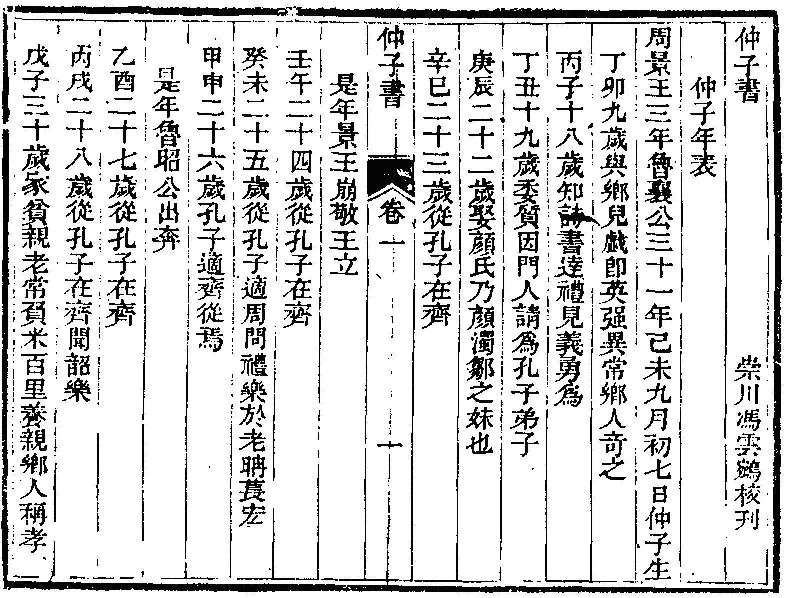 仲子書
崇川馮雲鵷校刊
仲子年表
周景王三年魯襄公三十一年己未九月初七日仲子生
丁卯九歲與鄉兒戲卽英强異常鄉人奇之
丙子十八歲知詩書達禮見義勇爲
丁丑十九歲委質因門人請爲孔子弟子
庚辰二十二歲娶顏氏乃顏濁鄒之妹也
辛巳二十三歲從孔子在齊
仲子書 卷一 一
是年景王崩敬王立
壬午二十四歲從孔子在齊
癸未二十五歲從孔子適周問禮樂於老聃萇宏
甲申二十六歲孔子適齊從焉
是年魯昭公出奔
乙酉二十七歲從孔子在齊
丙戌二十八歲從孔子在齊聞韶樂
戊子三十歲家貧親老常負米百里養親鄉人稱孝